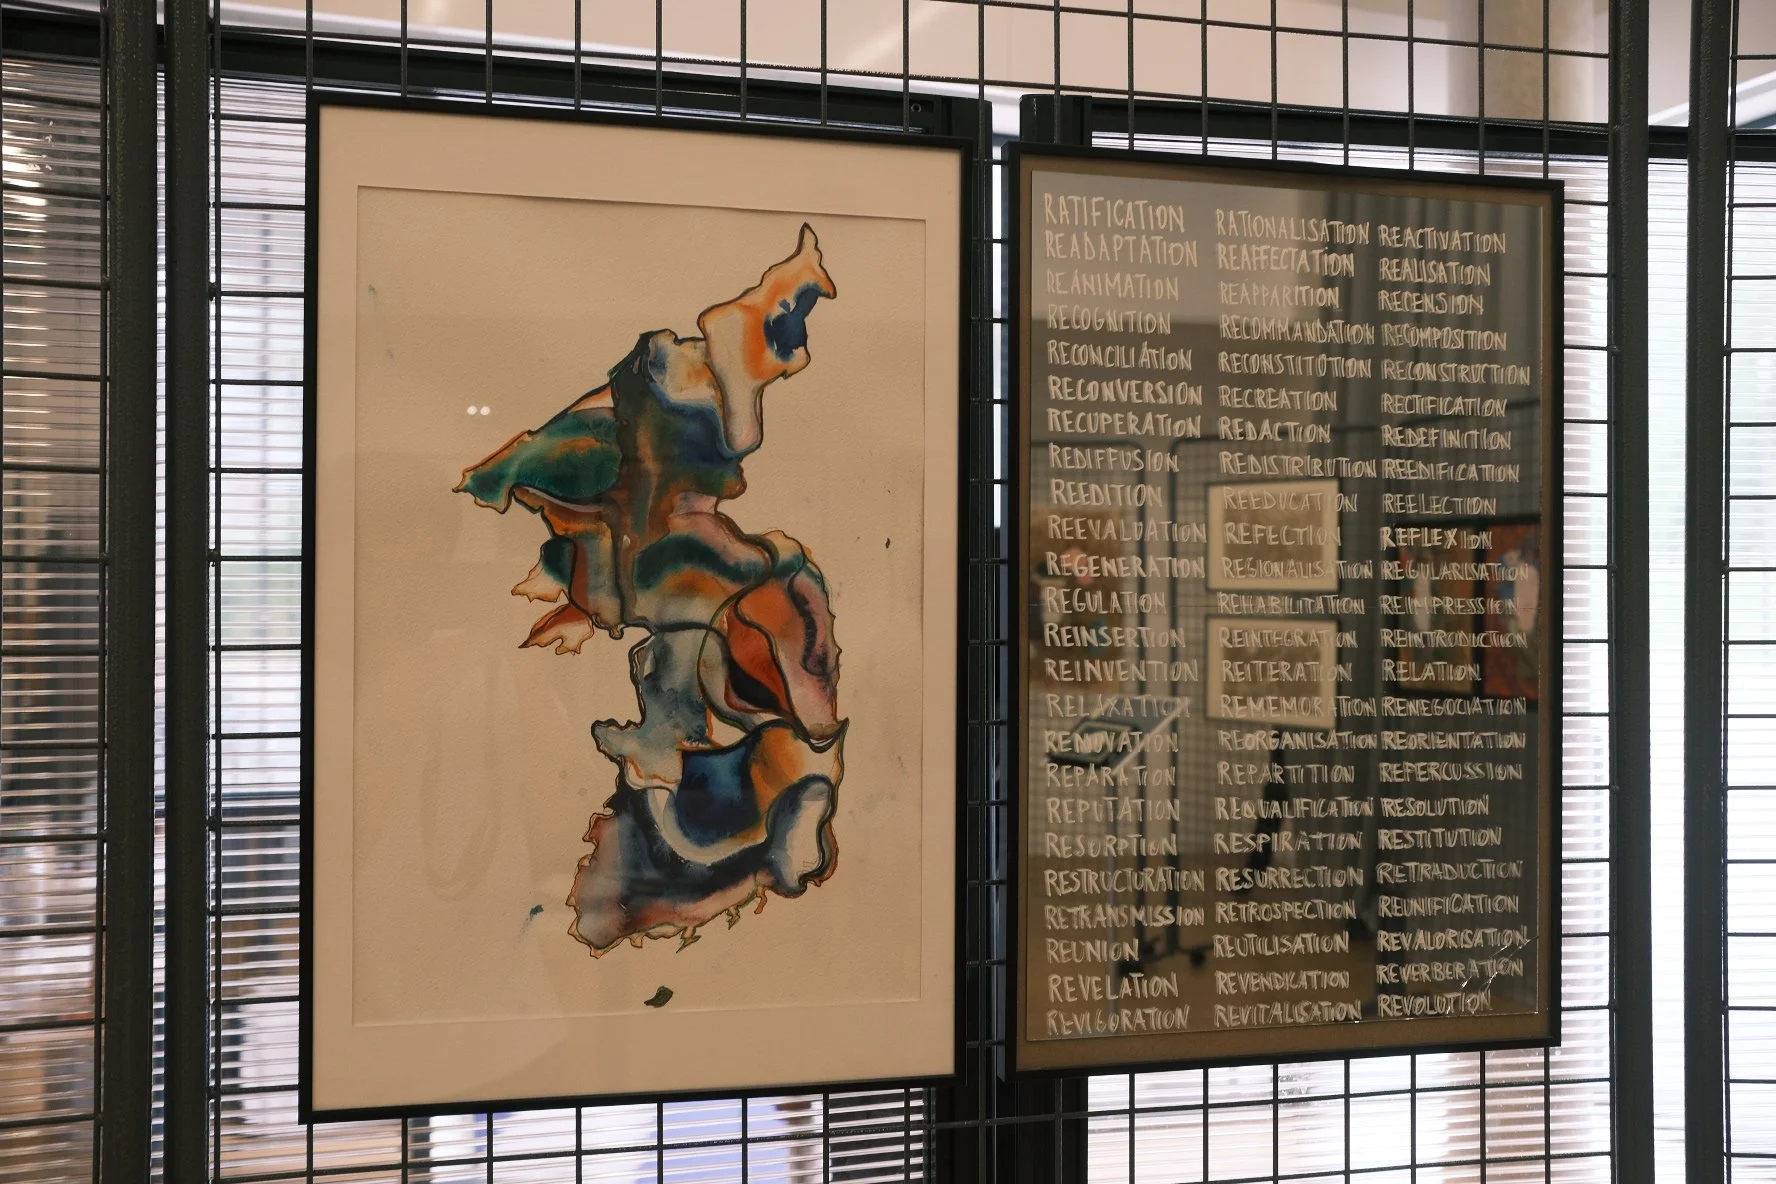 RATIFICATION RATIONALISATION REACTIVATION
READAPTATION REAFFECTATION REALISATION
REANIMATION REAPPARITION RECENSION
RECOGNITION RECOMMANDATION RECOMPOSITION
RECONCILIATION RECONSTITUTION RECONSTRUCTION
RECONVERSION RECREATION RECTIFICATION
RECUPERATION REDACTION REDEFINITION
REDIFFUSION REDISTRIBUTION REEDIFICATION
REEDITION REEDUCATION REELECTION
REEVALUATION REFECTION REFLEXION
REGENERATION REGIONALISATION REGULARISATION
REGULATION REHABILITATION REIMPRESSION
REINSERTION REINTEGRATION REINTRODUCTION
REINVENTION REITERATION RELATION
RELAXATION REMEMORATION RENEGOCIATION
RENOVATION REORGANISATION REORIENTATION
REPARATION REPARTITION REPERCUSSION
REPUTATION REQUALIFICATION RESOLUTION
RESORPTION RESPIRATION RESTITUTION
RESTRUCTURATION RESURRECTION RETRADUCTION
RETRANSMISSION RETROSPECTION REUNIFICATION
REUNION REUTILISATION REVALORISATION
REVELATION REVENDICATION REVERBERATION
REVIGORATION REVITALISATION REVOLUTION